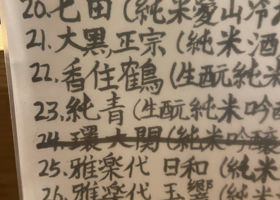 20.七田(純米愛山冷
21.大黒正宗(純米酒
22.香住鶴(生酛純米
23.純青(生酛純米吟
24.環大関(純米吟醸
25.雅楽代 日和(純
26.雅楽代 玉響(純米